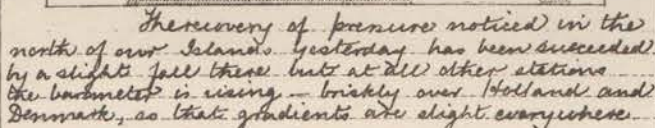 The recovery of pressure noticed in the
north of our Islands yesterday has been succeeded
by a slight fall there but at all other stations
the barometer is rising – briskly over Holland and
Denmark, so that gradients are slight everywhere